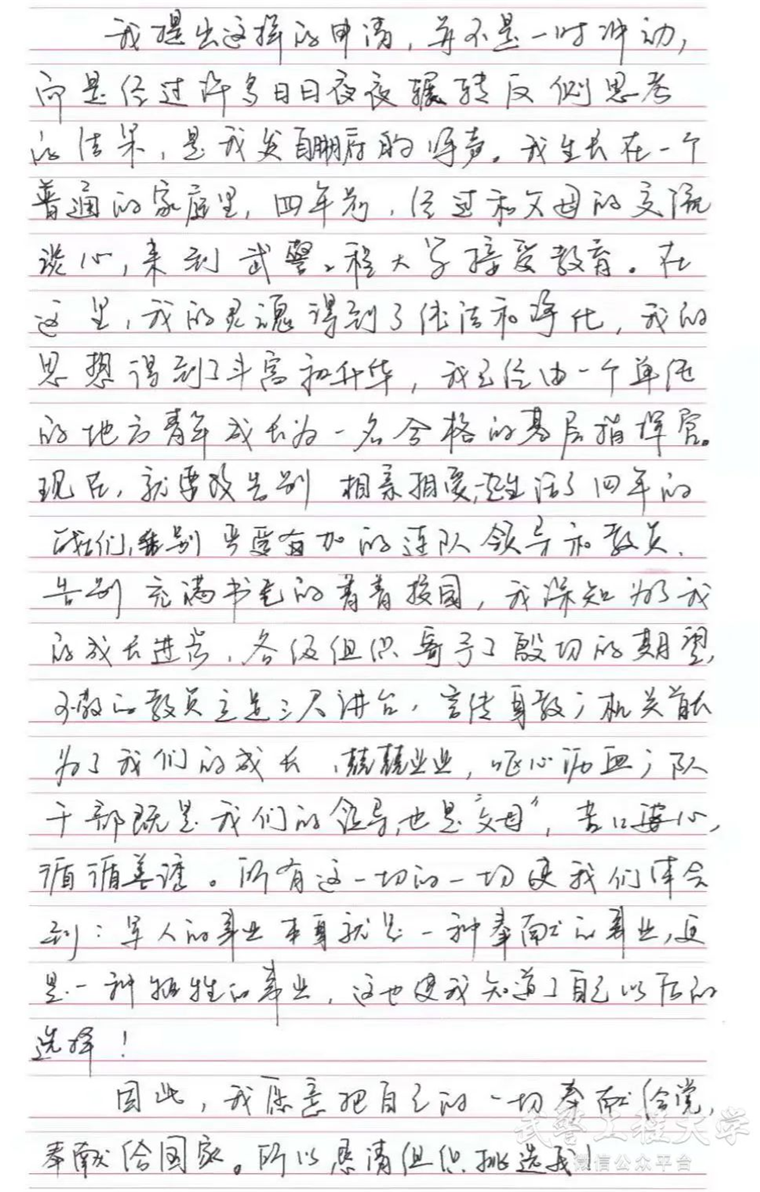 我提出这样的申请，并不是一时冲动，
而是经过许多日日夜夜辗转反侧思考
的结果，是我发自肺腑的呼声。我生长在一个
普通的家庭里，四年前，经过和父母的交流
谈心，来到武警工程大学接受教育。在
这里，我的灵魂得到了洗洁和净化，我的
思想得到了丰富和升华，我已经由一个单纯
的地方青年成长为一名合格的基层指挥官。
现在，就要告别 相亲相爱 生活了四年的
战友们，告别关爱有加的连队领导和教员、
告别充满书香的青青校园，我深知为了我
的成长进步，各级组织寄予了殷切的期望，
可敬的教员立足三尺讲台，言传身教；机关首长
为了我们的成长，兢兢业业，呕心沥血；队
干部既是我们的领导，也是“父母”，苦口婆心，
循循善诱。所有这一切的一切使我们体会
到：军人的事业本身就是一种奉献的事业，更
是一种牺牲的事业，这也使我知道了自己以后的
选择！
因此，我愿意把自己的一切奉献给党，
奉献给国家。所以恳请组织挑选我！
武警工程大学
微信公众平台